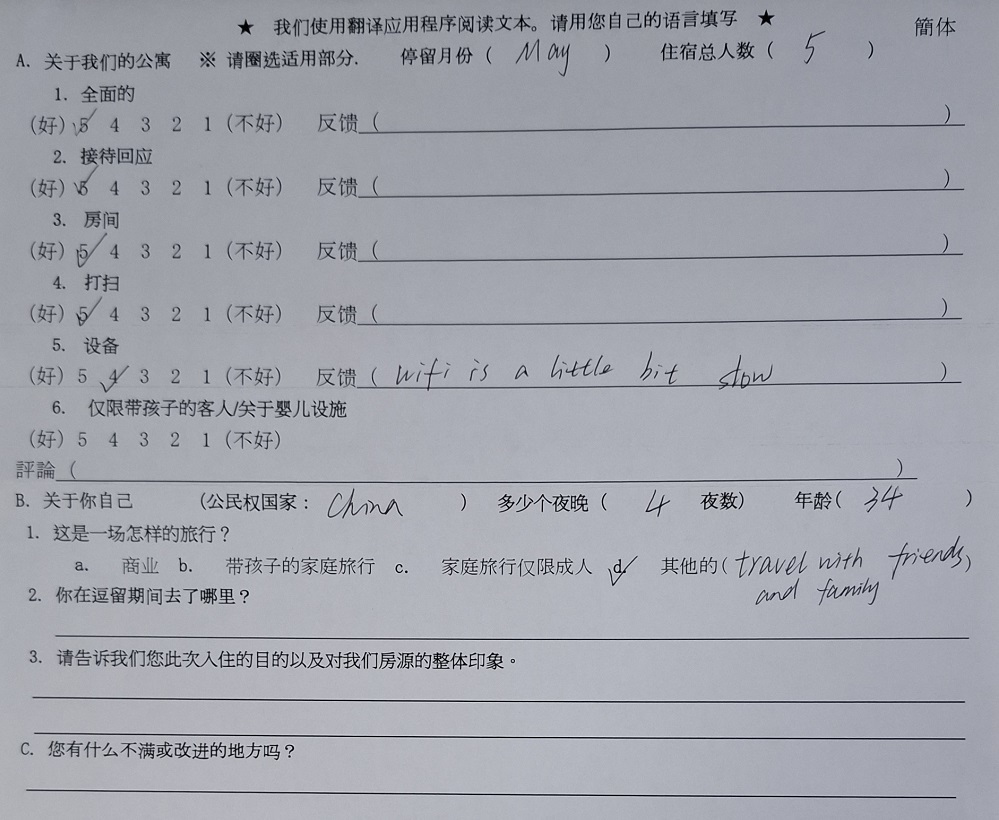 ★ 我们使用翻译应用程序阅读文本。请用您自己的语言填写 ★ 簡体
A. 关于我们的公寓 ※ 请圈选适用部分. 停留月份 ( May ) 住宿总人数 ( 5 )
1. 全面的
(好) 5 4 3 2 1 (不好) 反馈 ( )
2. 接待回应
(好) 5 4 3 2 1 (不好) 反馈 ( )
3. 房间
(好) 5 4 3 2 1 (不好) 反馈 ( )
4. 打扫
(好) 5 4 3 2 1 (不好) 反馈 ( )
5. 设备
(好) 5 4 3 2 1 (不好) 反馈 ( wifi is a little bit slow )
6. 仅限带孩子的客人/关于婴儿设施
(好) 5 4 3 2 1 (不好)
評論 ( )
B. 关于你自己 (公民权国家: China ) 多少个夜晚 ( 4 夜数) 年龄( 34 )
1. 这是一场怎样的旅行?
a. 商业 b. 带孩子的家庭旅行 c. 家庭旅行仅限成人 d. 其他的( travel with friends )
and family
2. 你在逗留期间去了哪里?
3. 请告诉我们您此次入住的目的以及对我们房源的整体印象。
C. 您有什么不满或改进的地方吗?